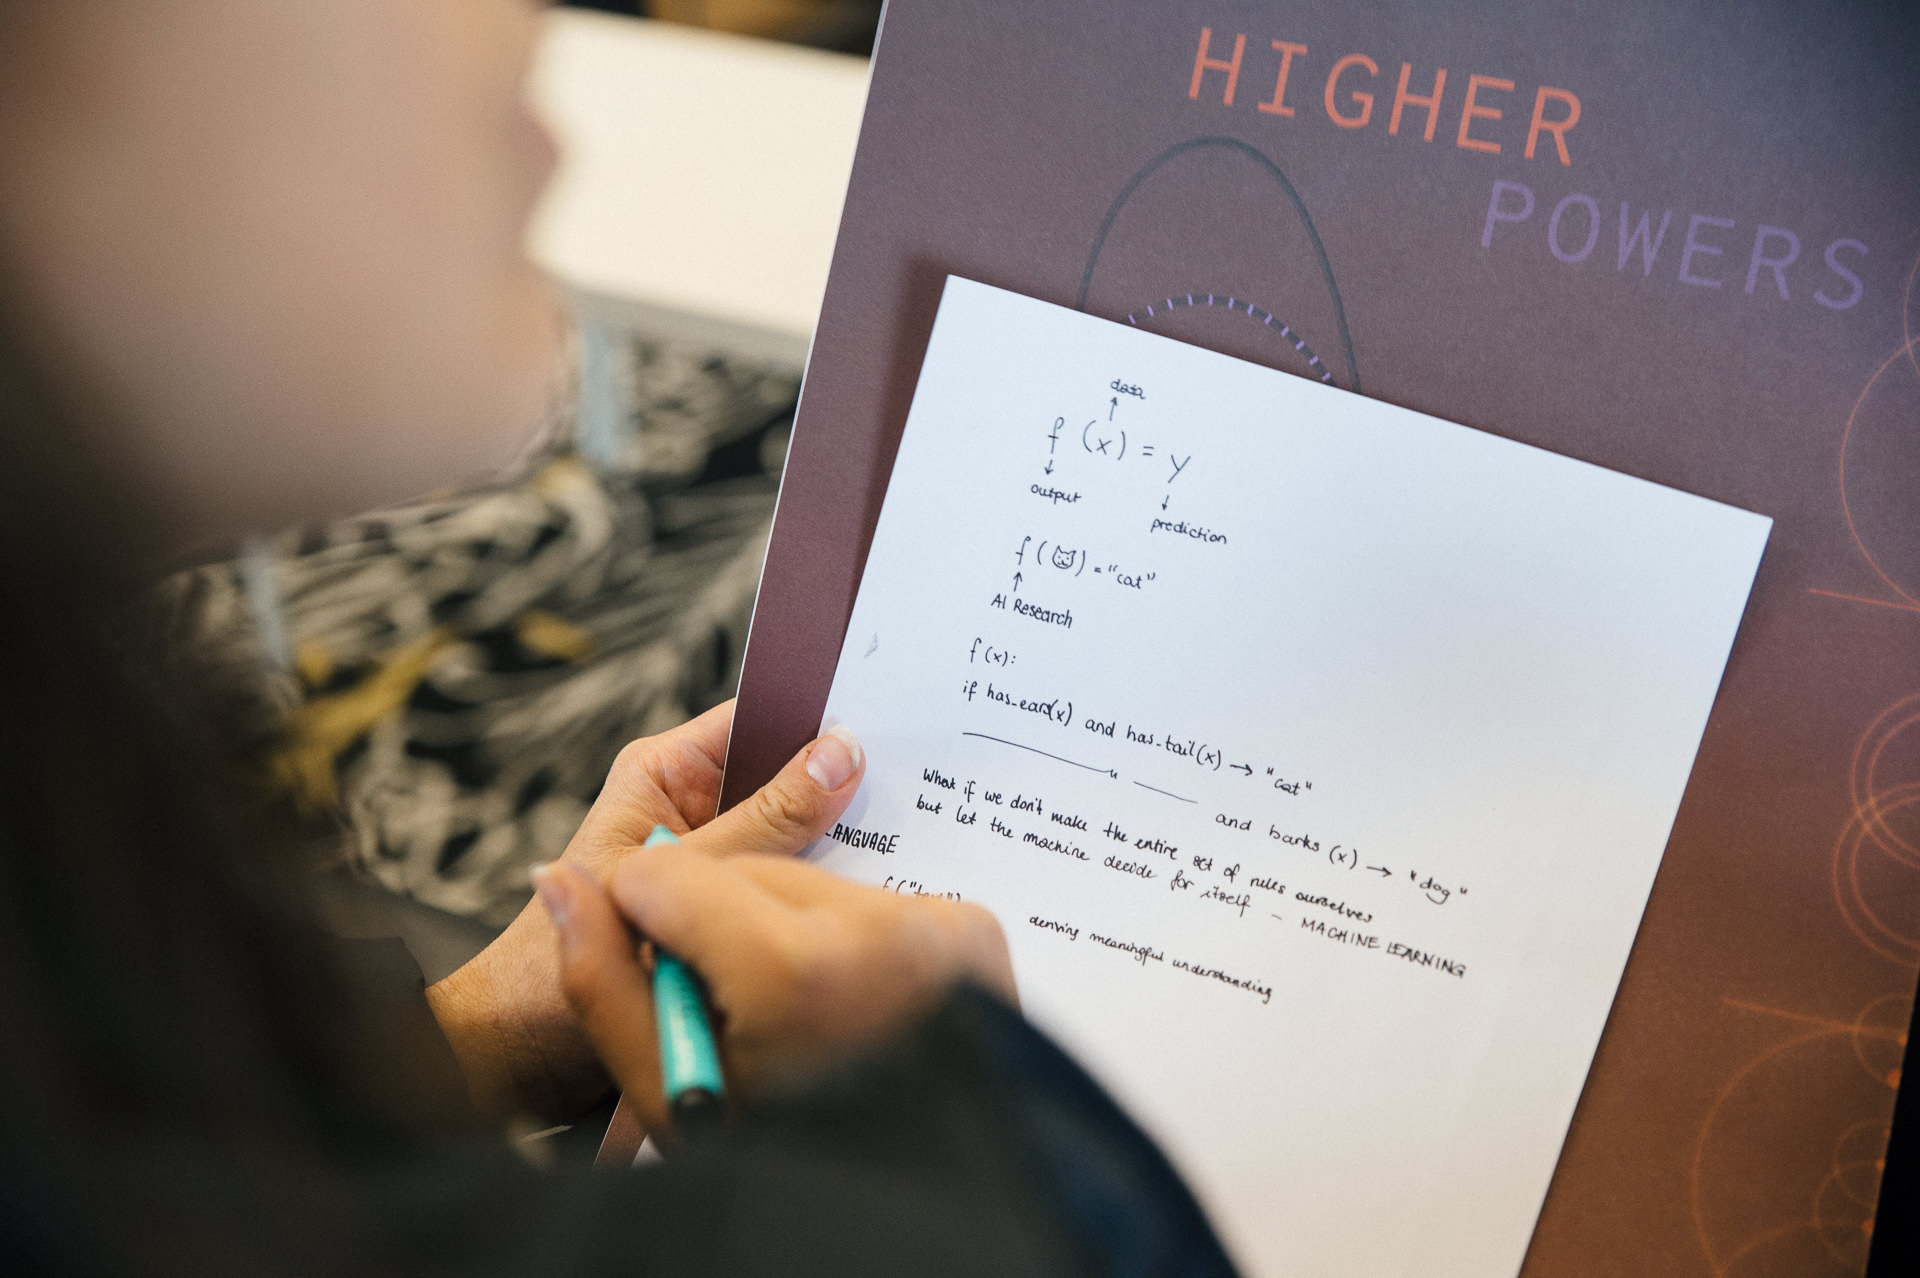 HIGHER
POWERS
data
f (x) = y
output
prediction
f ( ) = "cat"
AI Research
f (x):
if has_ears(x) and has_tail(x) → "cat"
____ " ____ and barks (x) → "dog"
What if we don't make the entire set of rules ourselves
but let the machine decide for itself - MACHINE LEARNING
LANGUAGE
f ("text")
deriving meaningful understanding